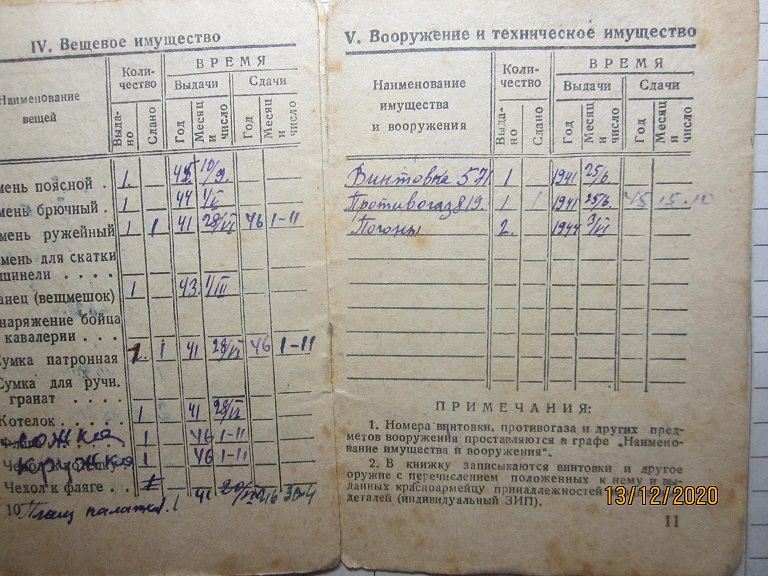 IV. Вещевое имущество
Наименование вещей
Коли-
чество
ВРЕМЯ
Выдачи
Сдачи
Выда-
но
Сдано
Год
Месяц
и
число
Год
Месяц
и
число
мень поясной . 1. 45. 10/9.
мень брючный . 1 44 1/VI
мень ружейный 1 1 41 28/VI 46 1-11
мень для скатки
шинели . . . .
анец (вещмешок) 1 43. 1/III
наряжение бойца
кавалерии . . .
умка патронная 1 41 28/VI 46 1-11
Сумка для ручн.
гранат . . . .
Котелок . . . . 1 41 28/VI
ложка 1 46 1-11
кружка 1 46 1-11
Чехол к фляге . . 41
10 Плащ палатка. 1
V. Вооружение и техническое имущество
Наименование
имущества
и вооружения
Коли-
чество
ВРЕМЯ
Выдачи
Сдачи
Выда-
но
Сдано
Год
Месяц
и
число
Год
Месяц
и
число
Винтовка 571. 1 1941 25/6.
Противогаз 819. 1 1 1941 25/6. 45 15.10
Погоны 2. 1944 3/VI
ПРИМЕЧАНИЯ:
1. Номера винтовки, противогаза и других пред-
метов вооружения проставляются в графе „Наимено-
вание имущества и вооружения".
2. В книжку записываются винтовки и другое
оружие с перечислением положенных к нему и вы-
данных красноармейцу принадлежностей
деталей (индивидуальный ЗИП).
13/12/2020
11